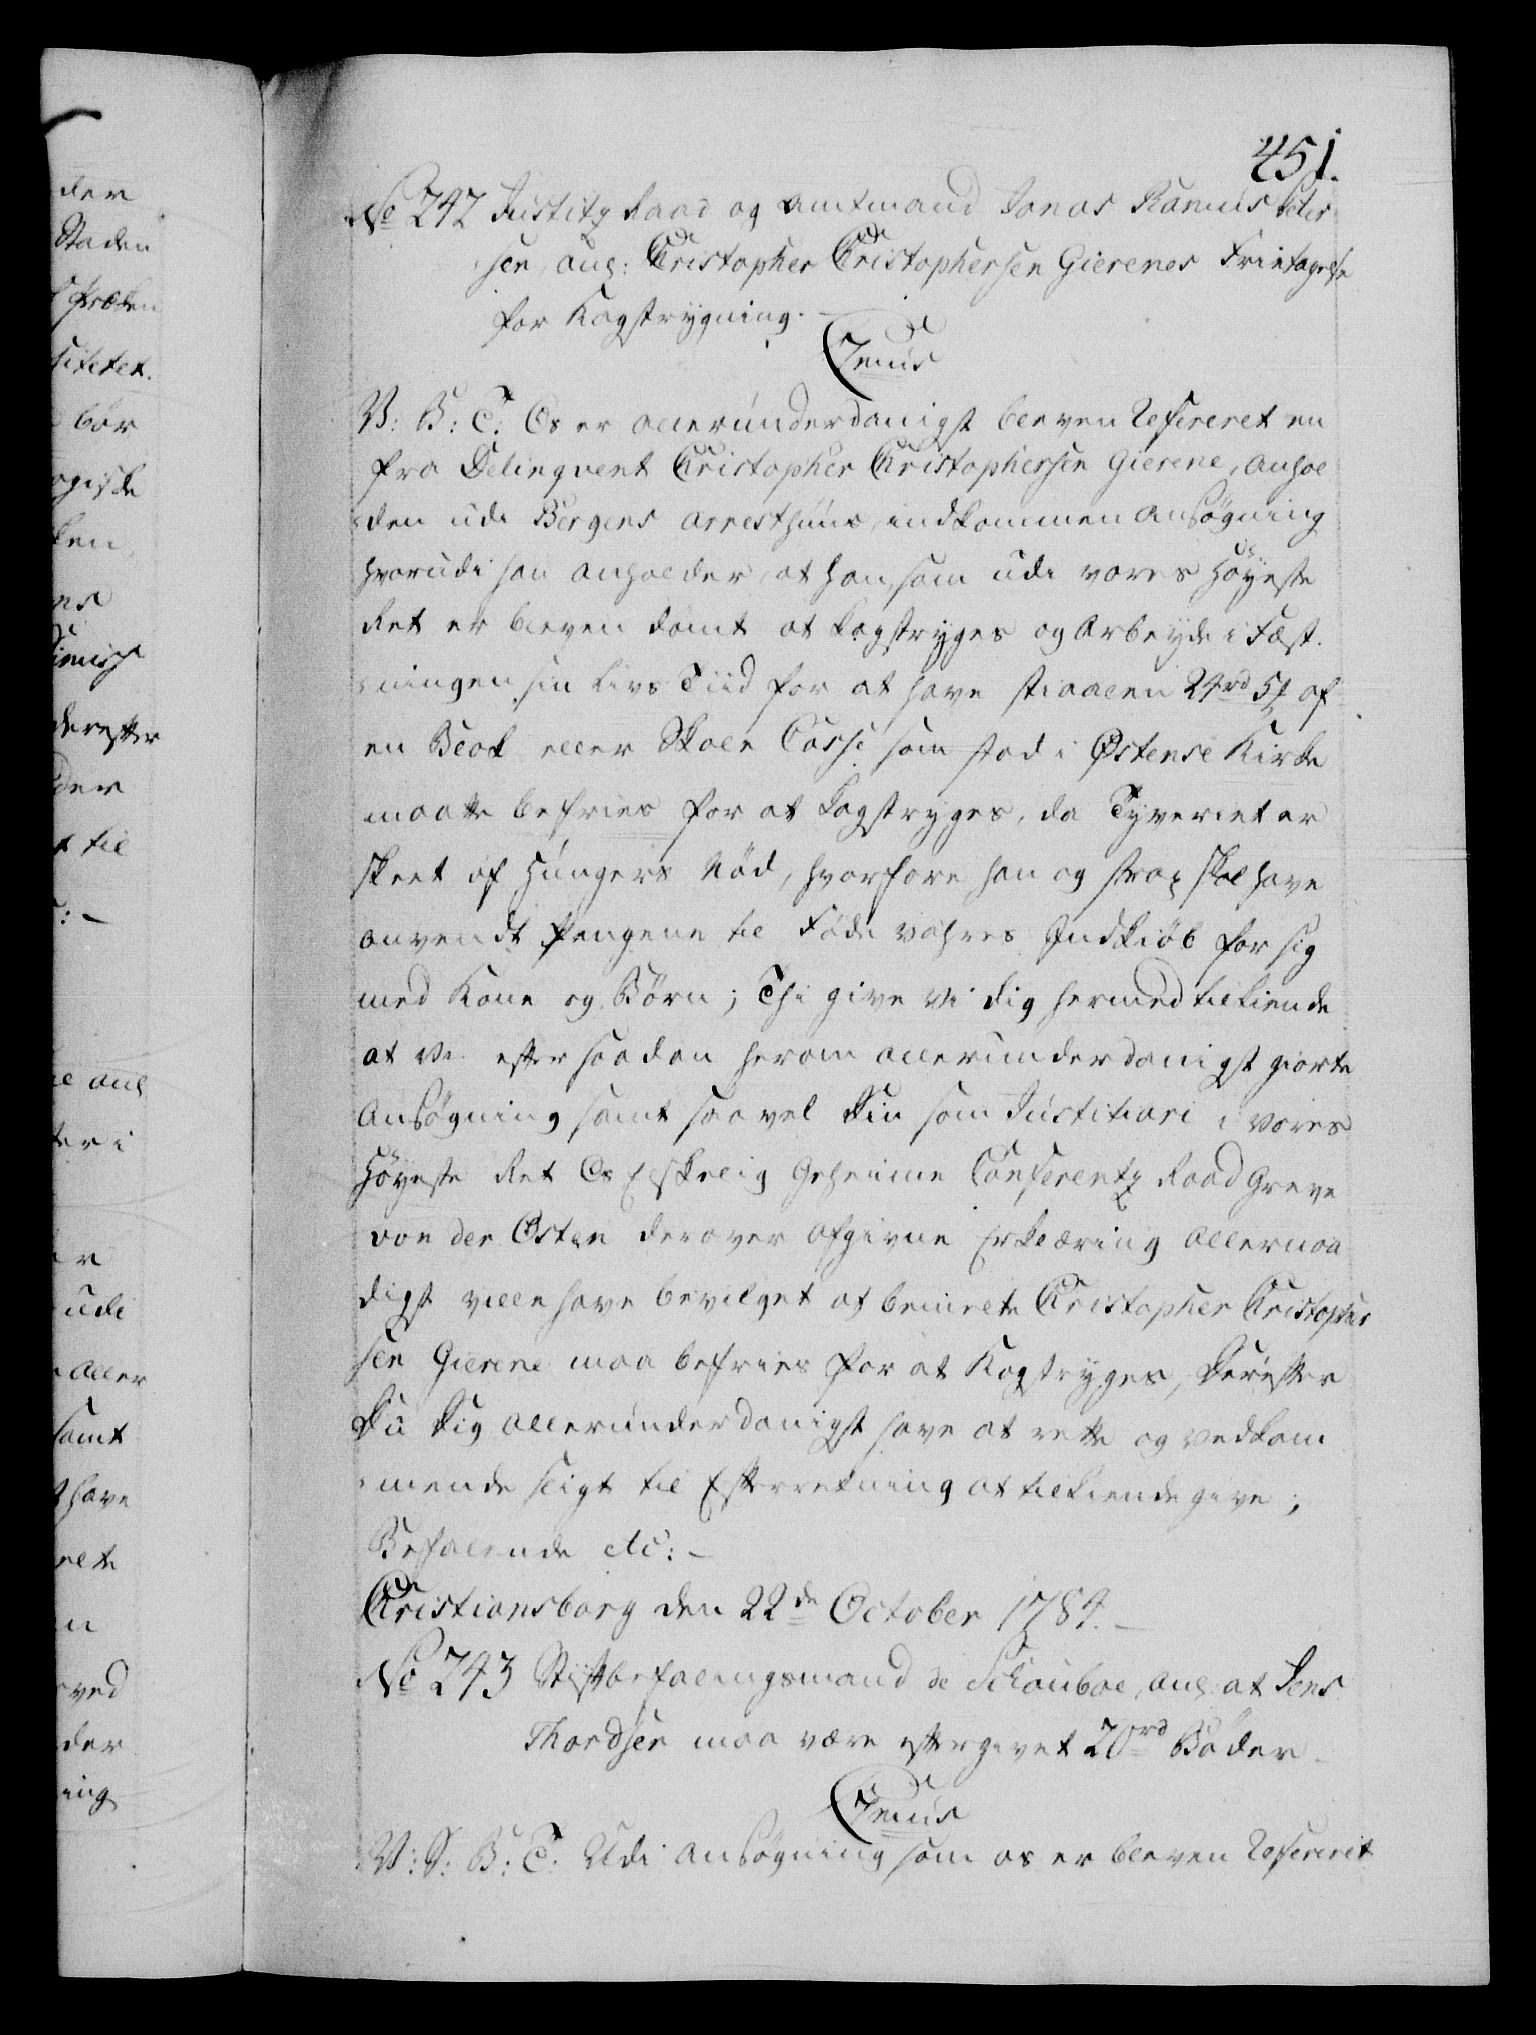 451.
No 242 Justitz Raad og Amtmand Jonas Ramus Peter
sen ang: Christopher Christophersen Gierenes Fritagelse
for Kagstrygning.
C7mus
V: B: T: Os er allerunderdanigst bleven Refereret en
fra Delinqvent Christopher Christophersen Gierene, anhol
den udi Bergens Arresthuus, indkommen Ansøgning
hvorudi han anholder, at han, som udi vores Høyeste
Ret er bleven dømt at kagstryges og Arbeyde i Fæst-
ningen sin Livs Tiid for at have stiaalen 24rd 5 af
en Blok eller Skole Casse som stod i Østensø Kirke
maatte befries for at kagstryges, da Tyveriet er
skeet af Hungers Nød, hvorfore han og strax skal have
anvendt Pengene til Føde vahres Indkiøb for sig
med Kone og Børn; Thi give Vi dig hermed tilkiende
at Vi efter saadan herom allerunderdanigst giorte
Ansøgning samt saavel Din som Justitiari i vores
Høyeste Ret Os Elskelig Geheime Conferentz Raad Greve
von der Osten derover afgivne Erklæring Allernaa
digst ville have bevilget at bemelte Christopher Christopher
sen Gierene maa befries for at Kagstryges, Derefter
Du Dig allerunderdanigst have at rette og vedkom
mende sligt til Efterretning at tilkiende give;
Befalende etc: -
Christiansborg den 22de October 1784. -
No 243 Stiftbefalingsmand de Schouboe, ang: at Jens
Thordsen maa være eftergivet 20rd Bøder -
C7mus
V: S: B: T: Udi Ansøgning som os er bleven Refereret